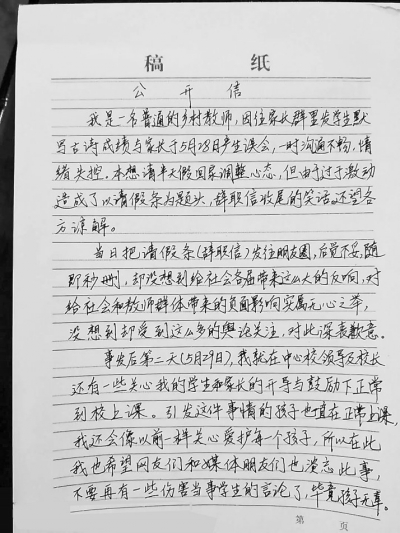 稿 纸
公开信
我是一名普通的乡村教师，因往家长群里发学生默
写古诗成绩与家长于5月28日产生误会，一时沟通不畅，情
绪失控。本想请半天假回家调整心态，但由于过于激动
造成了以请假条为题头，辞职信收尾的笑话。还望各
方谅解。
当日把请假条(辞职信)发往朋友圈，后觉不妥，随
即秒删，却没想到给社会各届带来这么大的反响，对
给社会和教师群体带来的负面影响实属无心之举，
没想到却受到这么多的舆论关注，对此深表歉意。
事发后第二天(5月29日)，我就在中心校领导及校长
还有一些关心我的学生和家长的开导与鼓励下正常
到校上课。引发这件事情的孩子也一直在正常上课，
我还会像以前一样关心爱护每个孩子，所以在此
我也希望网友们和媒体朋友们也淡忘此事，
不要再有一些伤害当事学生的言论了，毕竟孩子无辜。
第 页